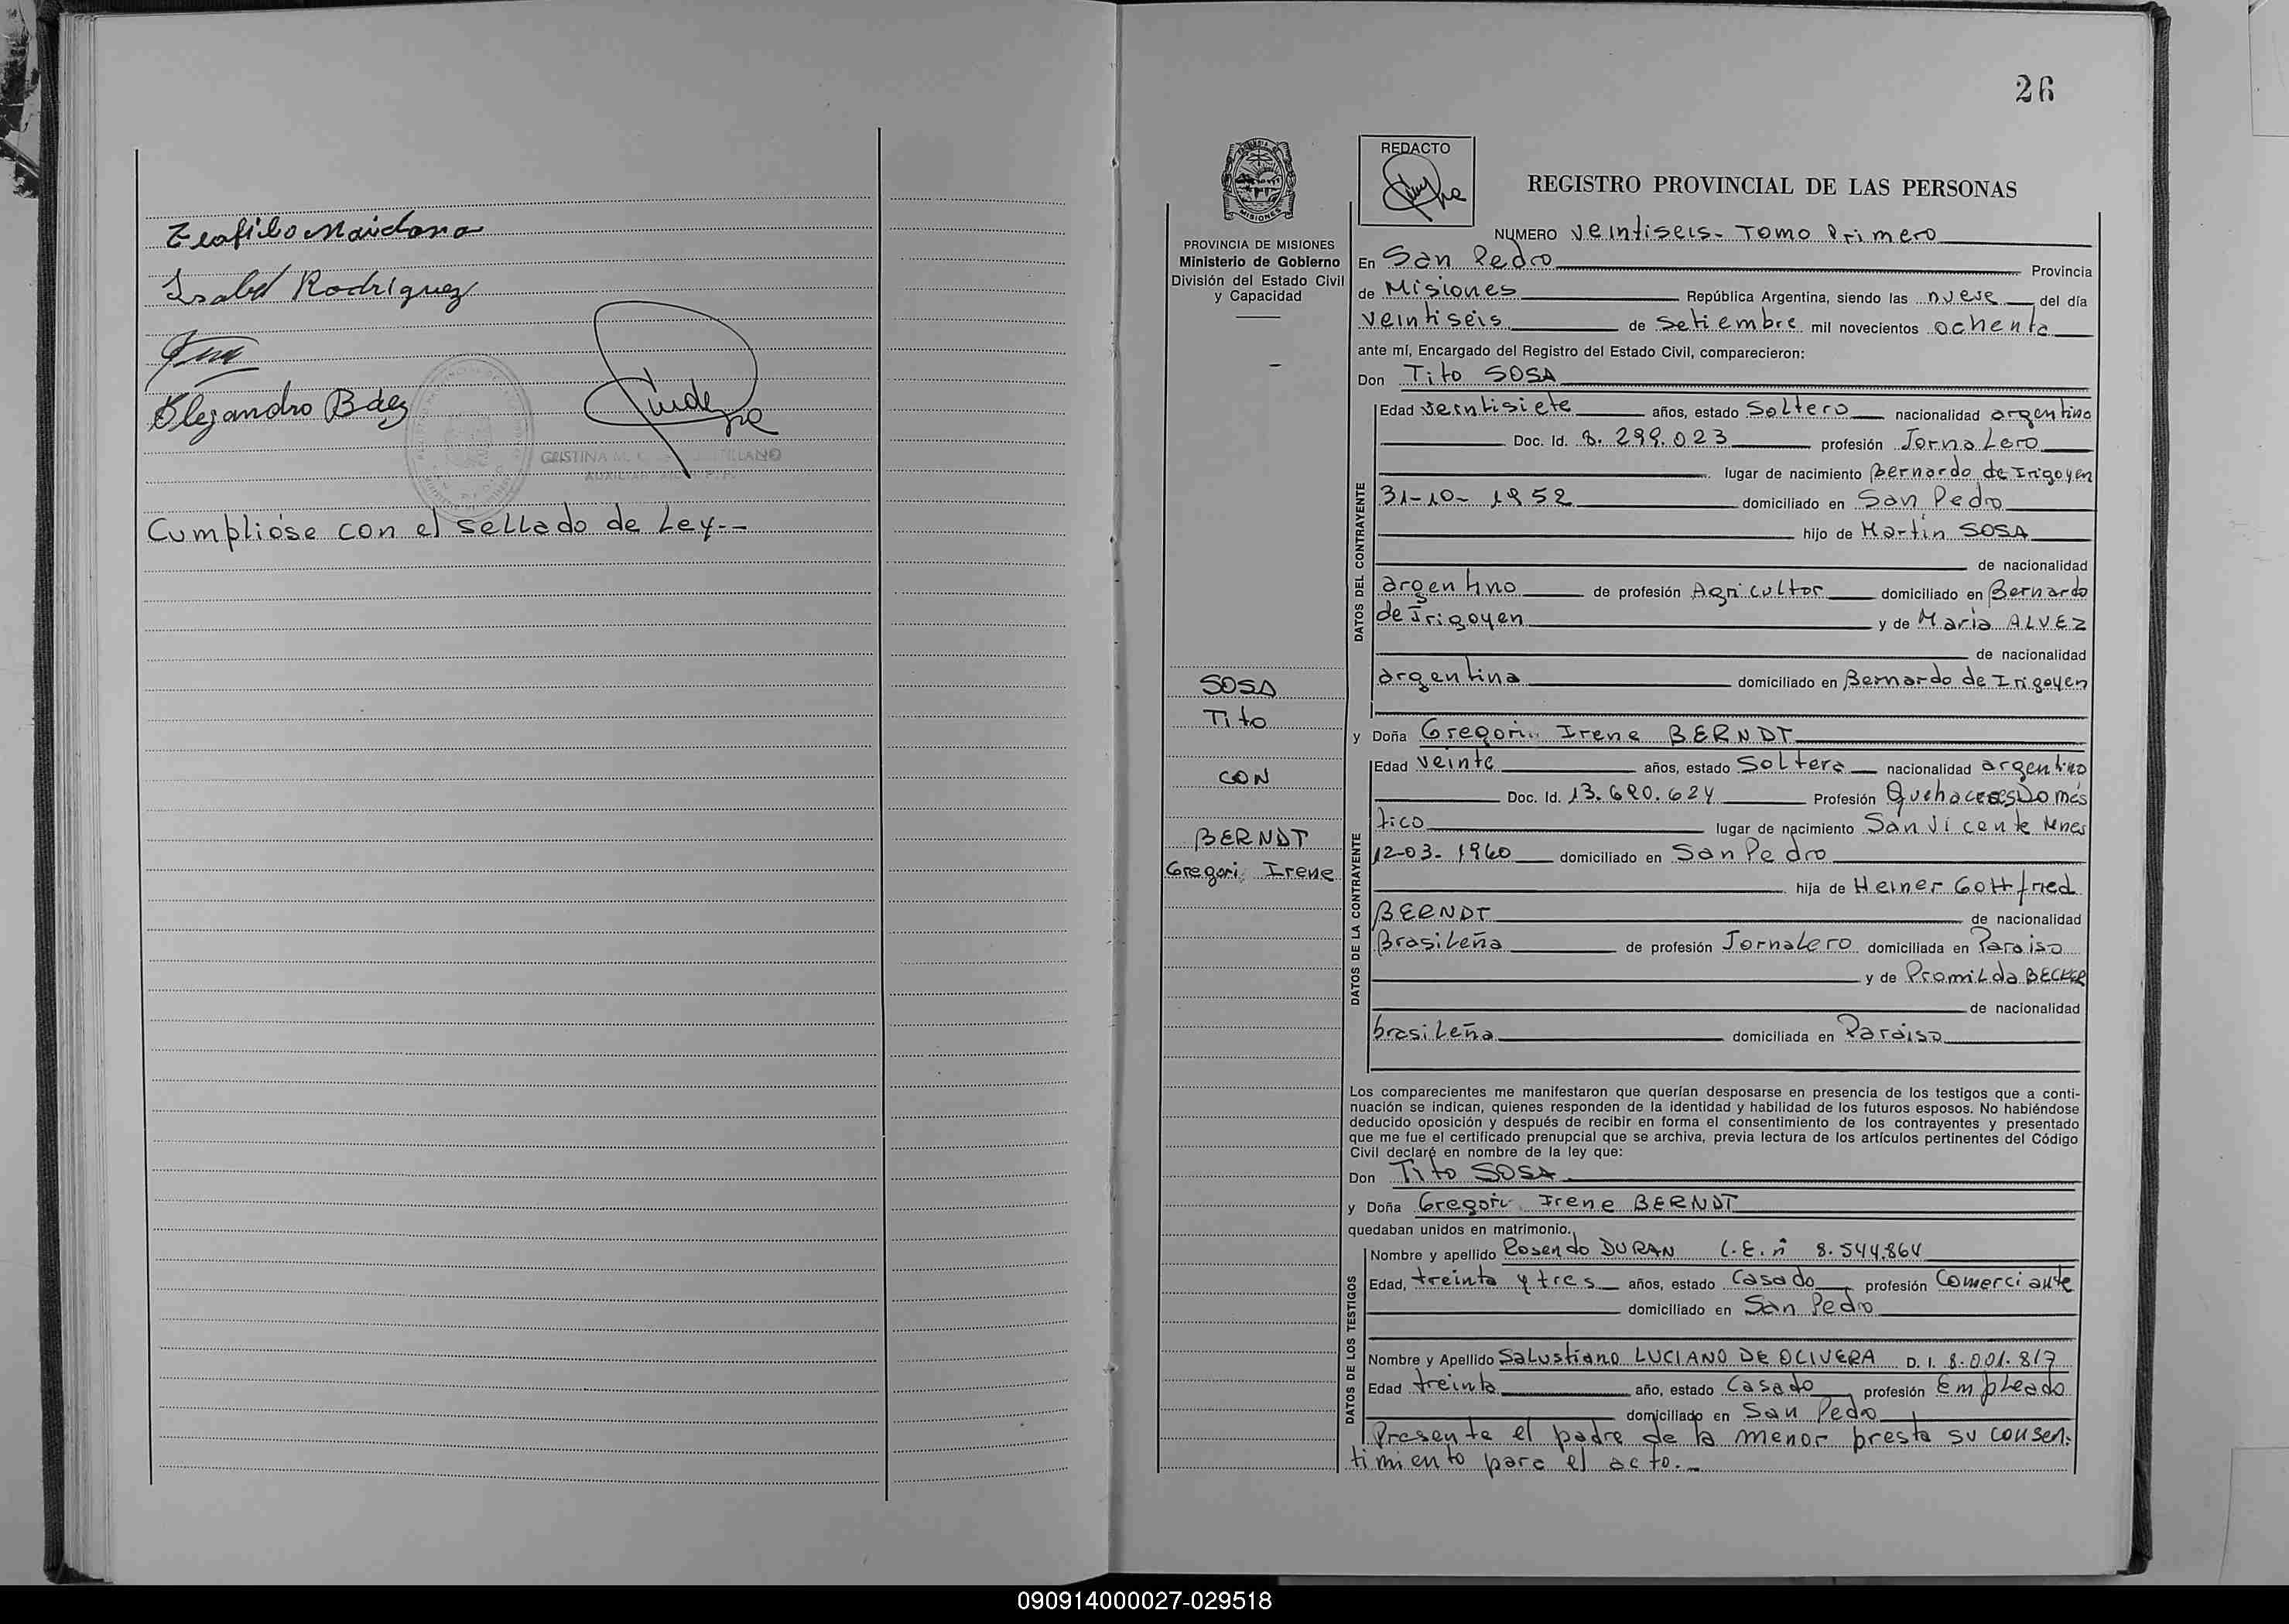 Teofilo Maidana
Isabel Rodriguez
Alejandro Baez
CRISTINA M.
AUXILIAR
Cumplióse con el sellado de Ley.--
26
REDACTO
REGISTRO PROVINCIAL DE LAS PERSONAS
MISIONES
PROVINCIA DE MISIONES
Ministerio de Gobierno
División del Estado Civil
y Capacidad
NUMERO veintiseis - Tomo Primero
En San Pedro Provincia
de Misiones República Argentina, siendo las nueve del día
veintiseis de setiembre mil novecientos ochenta
ante mí, Encargado del Registro del Estado Civil, comparecieron:
Don Tito SOSA
Edad veintisiete años, estado Soltero nacionalidad argentino
Doc. Id. 8.299.023 profesión Jornalero
lugar de nacimiento Bernardo de Irigoyen
31-10-1952 domiciliado en San Pedro
hijo de Martin SOSA
de nacionalidad
argentino de profesión Agricultor domiciliado en Bernardo
de Irigoyen y de María ALVEZ
de nacionalidad
argentina domiciliado en Bernardo de Irigoyen
DATOS DEL CONTRAYENTE
SOSA
Tito
CON
BERNDT
Gregori Irene
y Doña Gregori Irene BERNDT
Edad veinte años, estado Soltera nacionalidad argentino
Doc. Id. 13.690.624 Profesión Quehaceres Domes
tico lugar de nacimiento San Vicente Mnes
12-03-1960 domiciliado en San Pedro
hija de Heiner Gottfried
BERNDT de nacionalidad
Brasileña de profesión Jornalero domiciliada en Paraiso
y de Promilda BECKER
de nacionalidad
brasileña domiciliada en Paraiso
DATOS DE LA CONTRAYENTE
Los comparecientes me manifestaron que querían desposarse en presencia de los testigos que a conti-
nuación se indican, quienes responden de la identidad y habilidad de los futuros esposos. No habiéndose
deducido oposición y después de recibir en forma el consentimiento de los contrayentes y presentado
que me fue el certificado prenupcial que se archiva, previa lectura de los artículos pertinentes del Código
Civil declaré en nombre de la ley que:
Don Tito SOSA
y Doña Gregori Irene BERNDT
quedaban unidos en matrimonio.
Nombre y apellido Rosendo DURAN L.E. nº 8.544.864
Edad, treinta y tres años, estado Casado profesión Comerciante
domiciliado en San Pedro
Nombre y Apellido Salustiano LUCIANO DE OLIVERA D.I. 8.001.817
Edad treinta año, estado Casado profesión Empleado
domiciliado en San Pedro
DATOS DE LOS TESTIGOS
Presente el padre de la menor presta su consen-
timiento para el acto.-
090914000027-029518